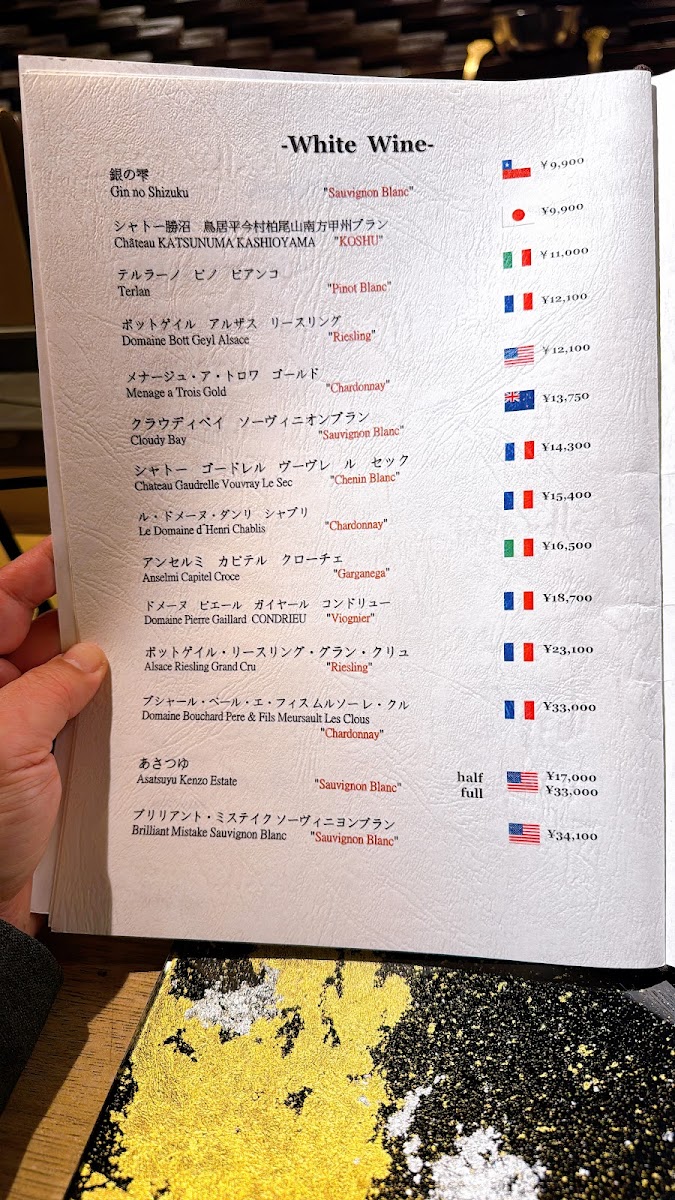 -White Wine-
銀の雫 ¥9,900
Gin no Shizuku "Sauvignon Blanc"
シャトー勝沼 鳥居平今村柏尾山南方甲州ブラン ¥9,900
Château KATSUNUMA KASHIOYAMA "KOSHU"
テルラーノ ピノ ビアンコ ¥11,000
Terlan "Pinot Blanc"
ボットゲイル アルザス リースリング ¥12,100
Domaine Bott Geyl Alsace "Riesling"
メナージュ・ア・トロワ ゴールド ¥12,100
Menage a Trois Gold "Chardonnay"
クラウディベイ ソーヴィニオンブラン ¥13,750
Cloudy Bay "Sauvignon Blanc"
シャトー ゴードレル ヴーヴレ ル セック ¥14,300
Chateau Gaudrelle Vouvray Le Sec "Chenin Blanc"
ル・ドメーヌ・ダンリ シャブリ ¥15,400
Le Domaine d´Henri Chablis "Chardonnay"
アンセルミ カピテル クローチェ ¥16,500
Anselmi Capitel Croce "Garganega"
ドメーヌ ピエール ガイヤール コンドリュー ¥18,700
Domaine Pierre Gaillard CONDRIEU "Viognier"
ボットゲイル・リースリング・グラン・クリュ ¥23,100
Alsace Riesling Grand Cru "Riesling"
ブシャール・ペール・エ・フィス ムルソー レ・クル ¥33,000
Domaine Bouchard Pere & Fils Meursault Les Clous
"Chardonnay"
あさつゆ half ¥17,000
Asatsuyu Kenzo Estate "Sauvignon Blanc" full ¥33,000
ブリリアント・ミステイク ソーヴィニヨンブラン ¥34,100
Brilliant Mistake Sauvignon Blanc "Sauvignon Blanc"